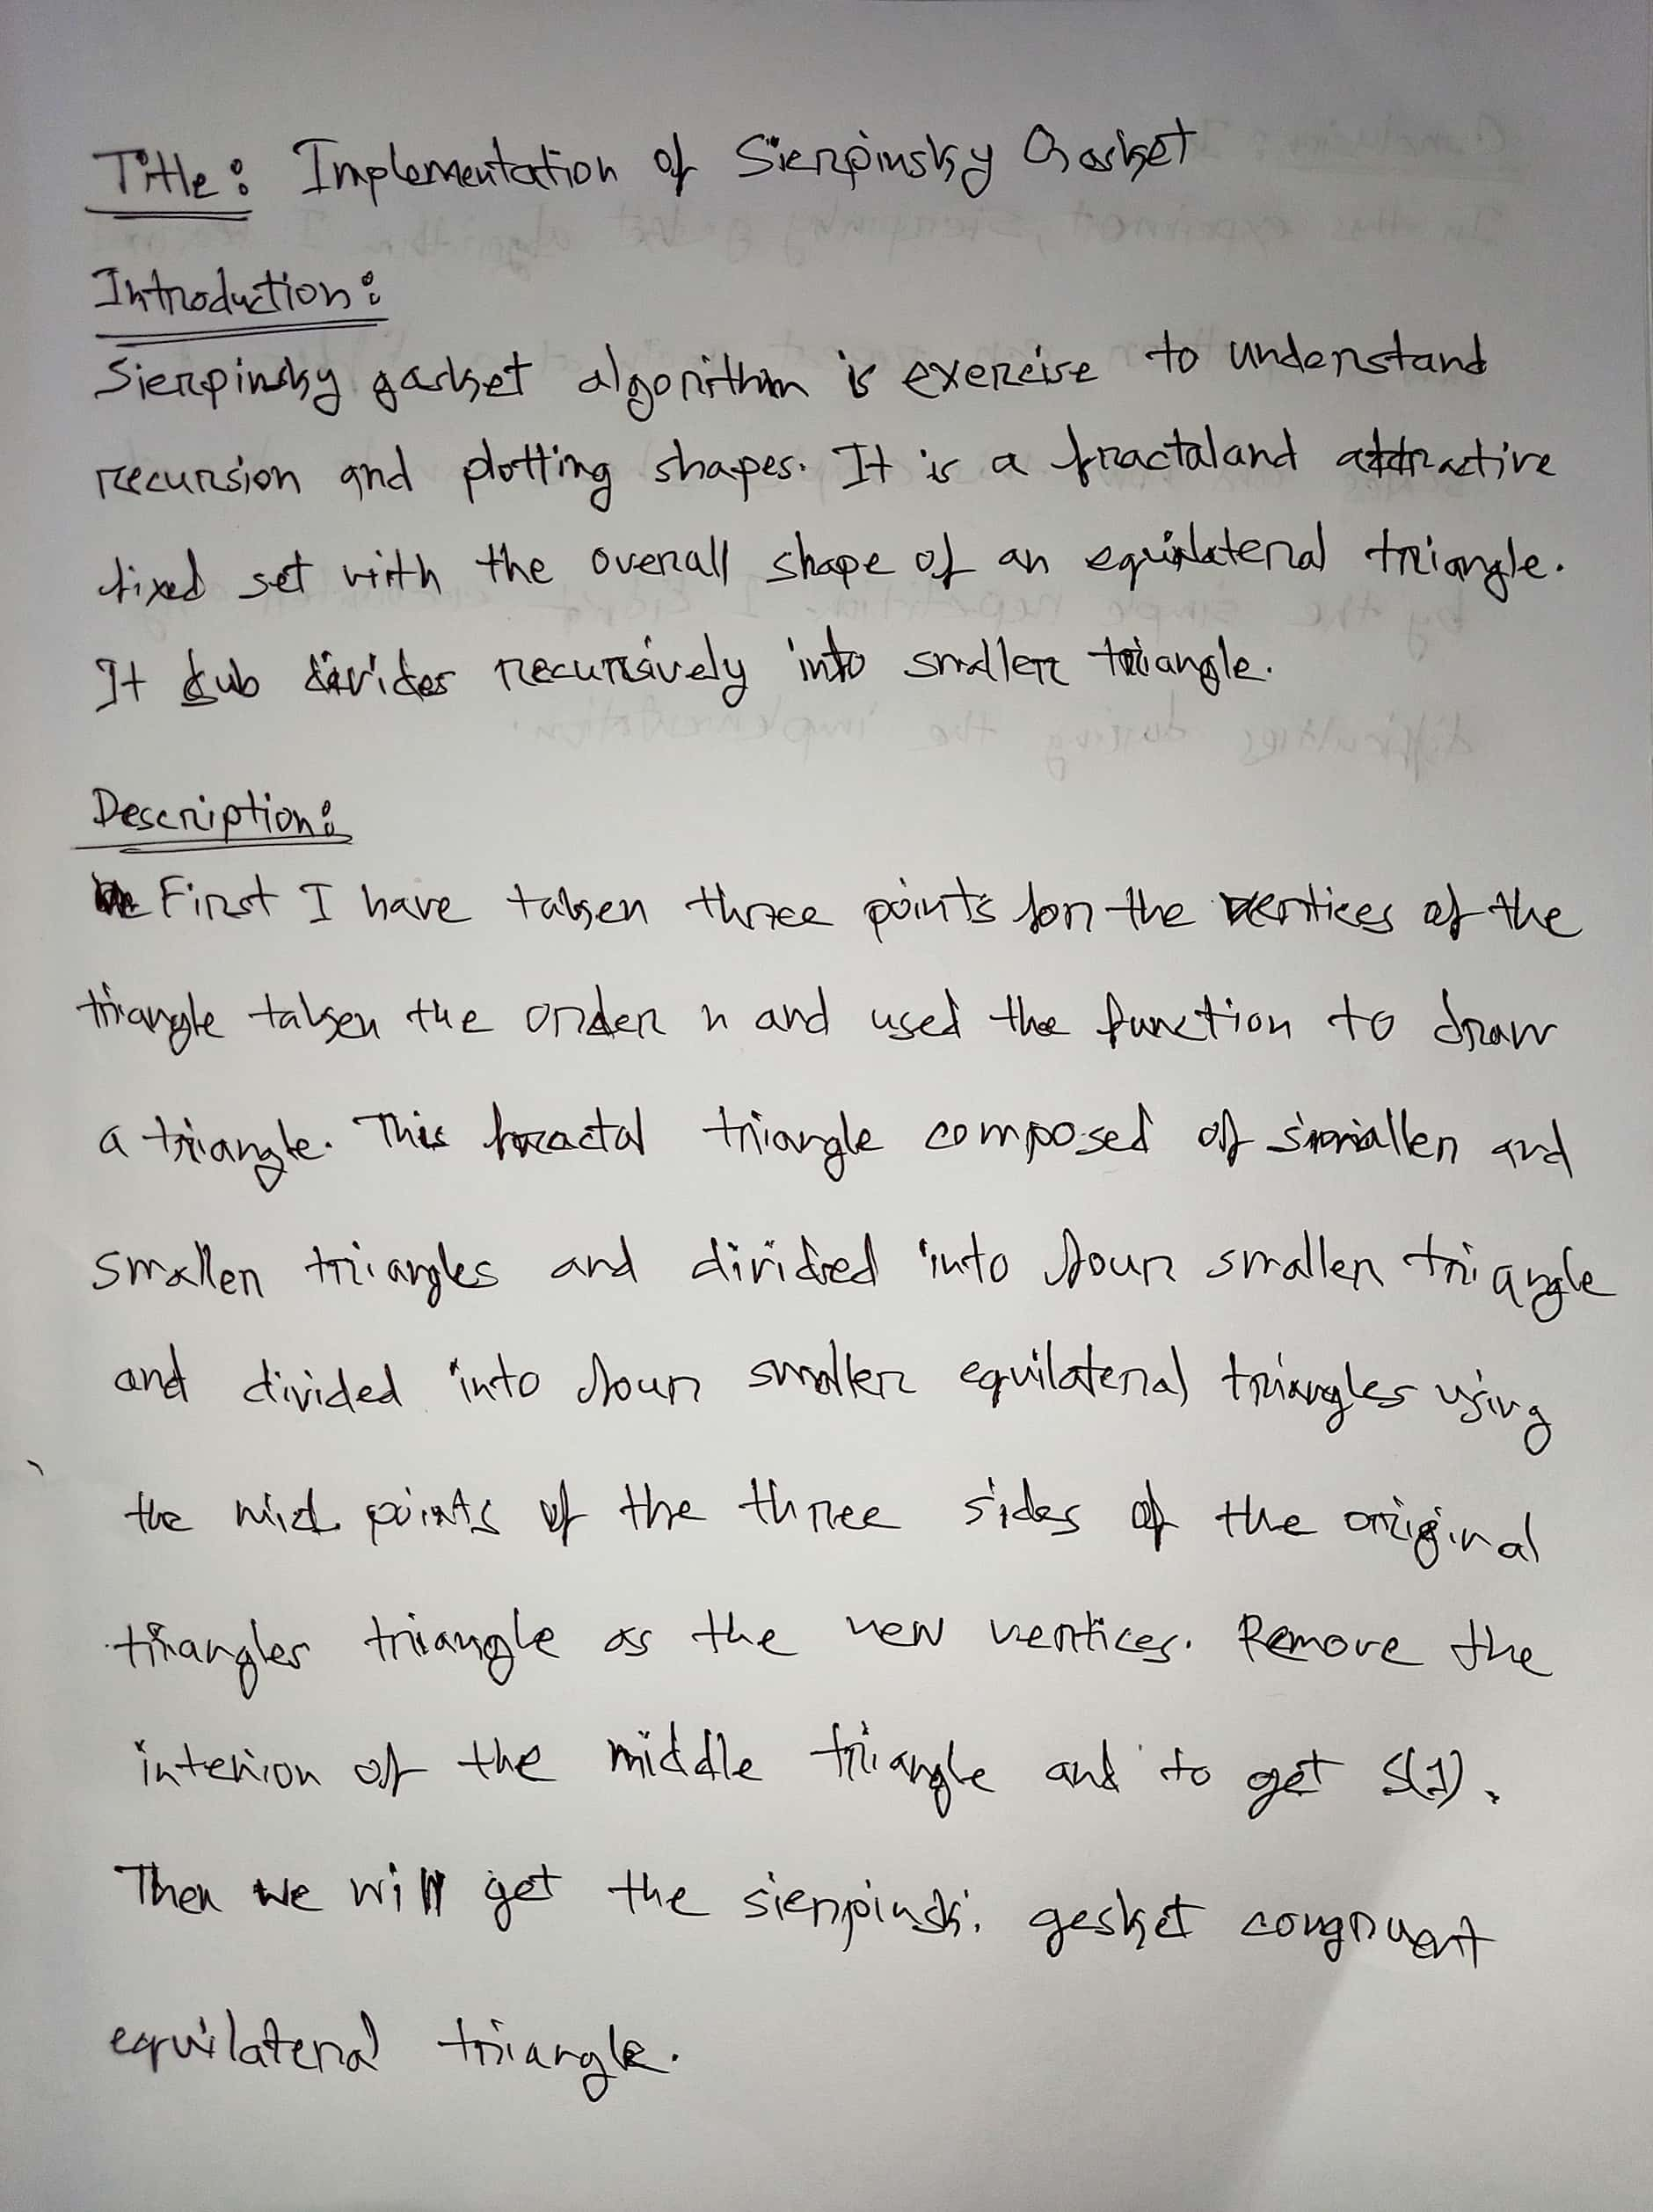 Title: Implementation of Sierpinsky Gasket
Introduction:
Sierpinsky gasket algorithm is exercise to understand
recursion and plotting shapes. It is a fractal and attractive
fixed set with the overall shape of an equilateral triangle.
It sub divides recursively into smaller triangle.
Description:
First I have taken three points for the vertices of the
triangle taken the order n and used the function to draw
a triangle. This fractal triangle composed of smaller and
smaller triangles and divided into four smaller triangle
and divided into four smaller equilateral triangles using
the mid points of the three sides of the original
triangles triangle as the new vertices. Remove the
interior of the middle triangle and to get S(1).
Then we will get the sierpinski gesket congruent
equilateral triangle.